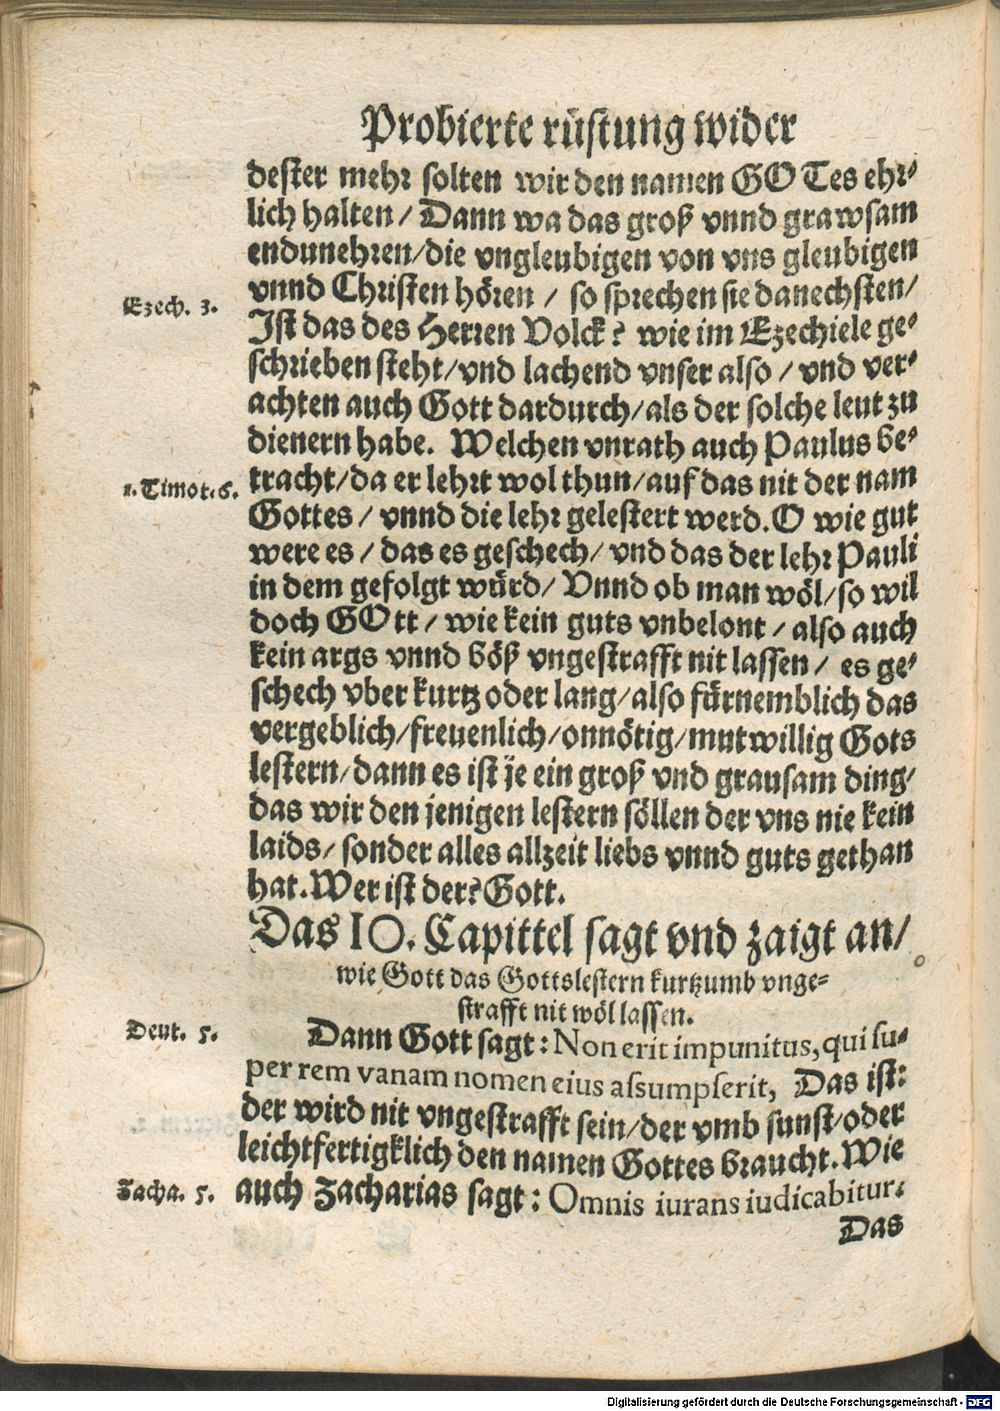 Probierte rüstung wider
dester mehr solten wir den namen GOTes ehr⸗
lich halten / Dann wa das groß vnnd grawsam
endunehren/die vngleubigen von vns gleubigen
vnnd Christen hören / so sprechen sie danechsten/
Ezech. 3.
Ist das des Herren Volck? wie im Ezechiele ge⸗
schrieben steht/vnd lachend vnser also / vnd ver⸗
achten auch Gott dardurch/als der solche leut zu
dienern habe. Welchen vnrath auch Paulus be⸗
1. Timot. 6.
tracht/da er lehrt wol thun/auf das nit der nam
Gottes / vnnd die lehr gelestert werd. O wie gut
were es / das es geschech/ vnd das der lehr Pauli
in dem gefolgt würd/ Vnnd ob man wöl/so wil
doch GOtt / wie kein guts vnbelont / also auch
kein args vnnd böß vngestrafft nit lassen / es ge⸗
schech vber kurtz oder lang/also fürnemblich das
vergeblich/freuenlich/onnötig/mutwillig Gots
lestern/dann es ist je ein groß vnd grausam ding/
das wir den jenigen lestern söllen der vns nie kein
laids/ sonder alles allzeit liebs vnnd guts gethan
hat. Wer ist der? Gott.
Das 10. Capittel sagt vnd zaigt an/
wie Gott das Gottslestern kurtzumb vnge⸗
strafft nit wöl lassen.
Deut. 5.
Dann Gott sagt: Non erit impunitus, qui su⸗
per rem vanam nomen eius assumpserit, Das ist:
der wird nit vngestrafft sein/der vmb sunst/oder
leichtfertigklich den namen Gottes braucht. Wie
Zacha. 5.
auch Zacharias sagt: Omnis iurans iudicabitur.
Das
Digitalisierung gefördert durch die Deutsche Forschungsgemeinschaft - DFG